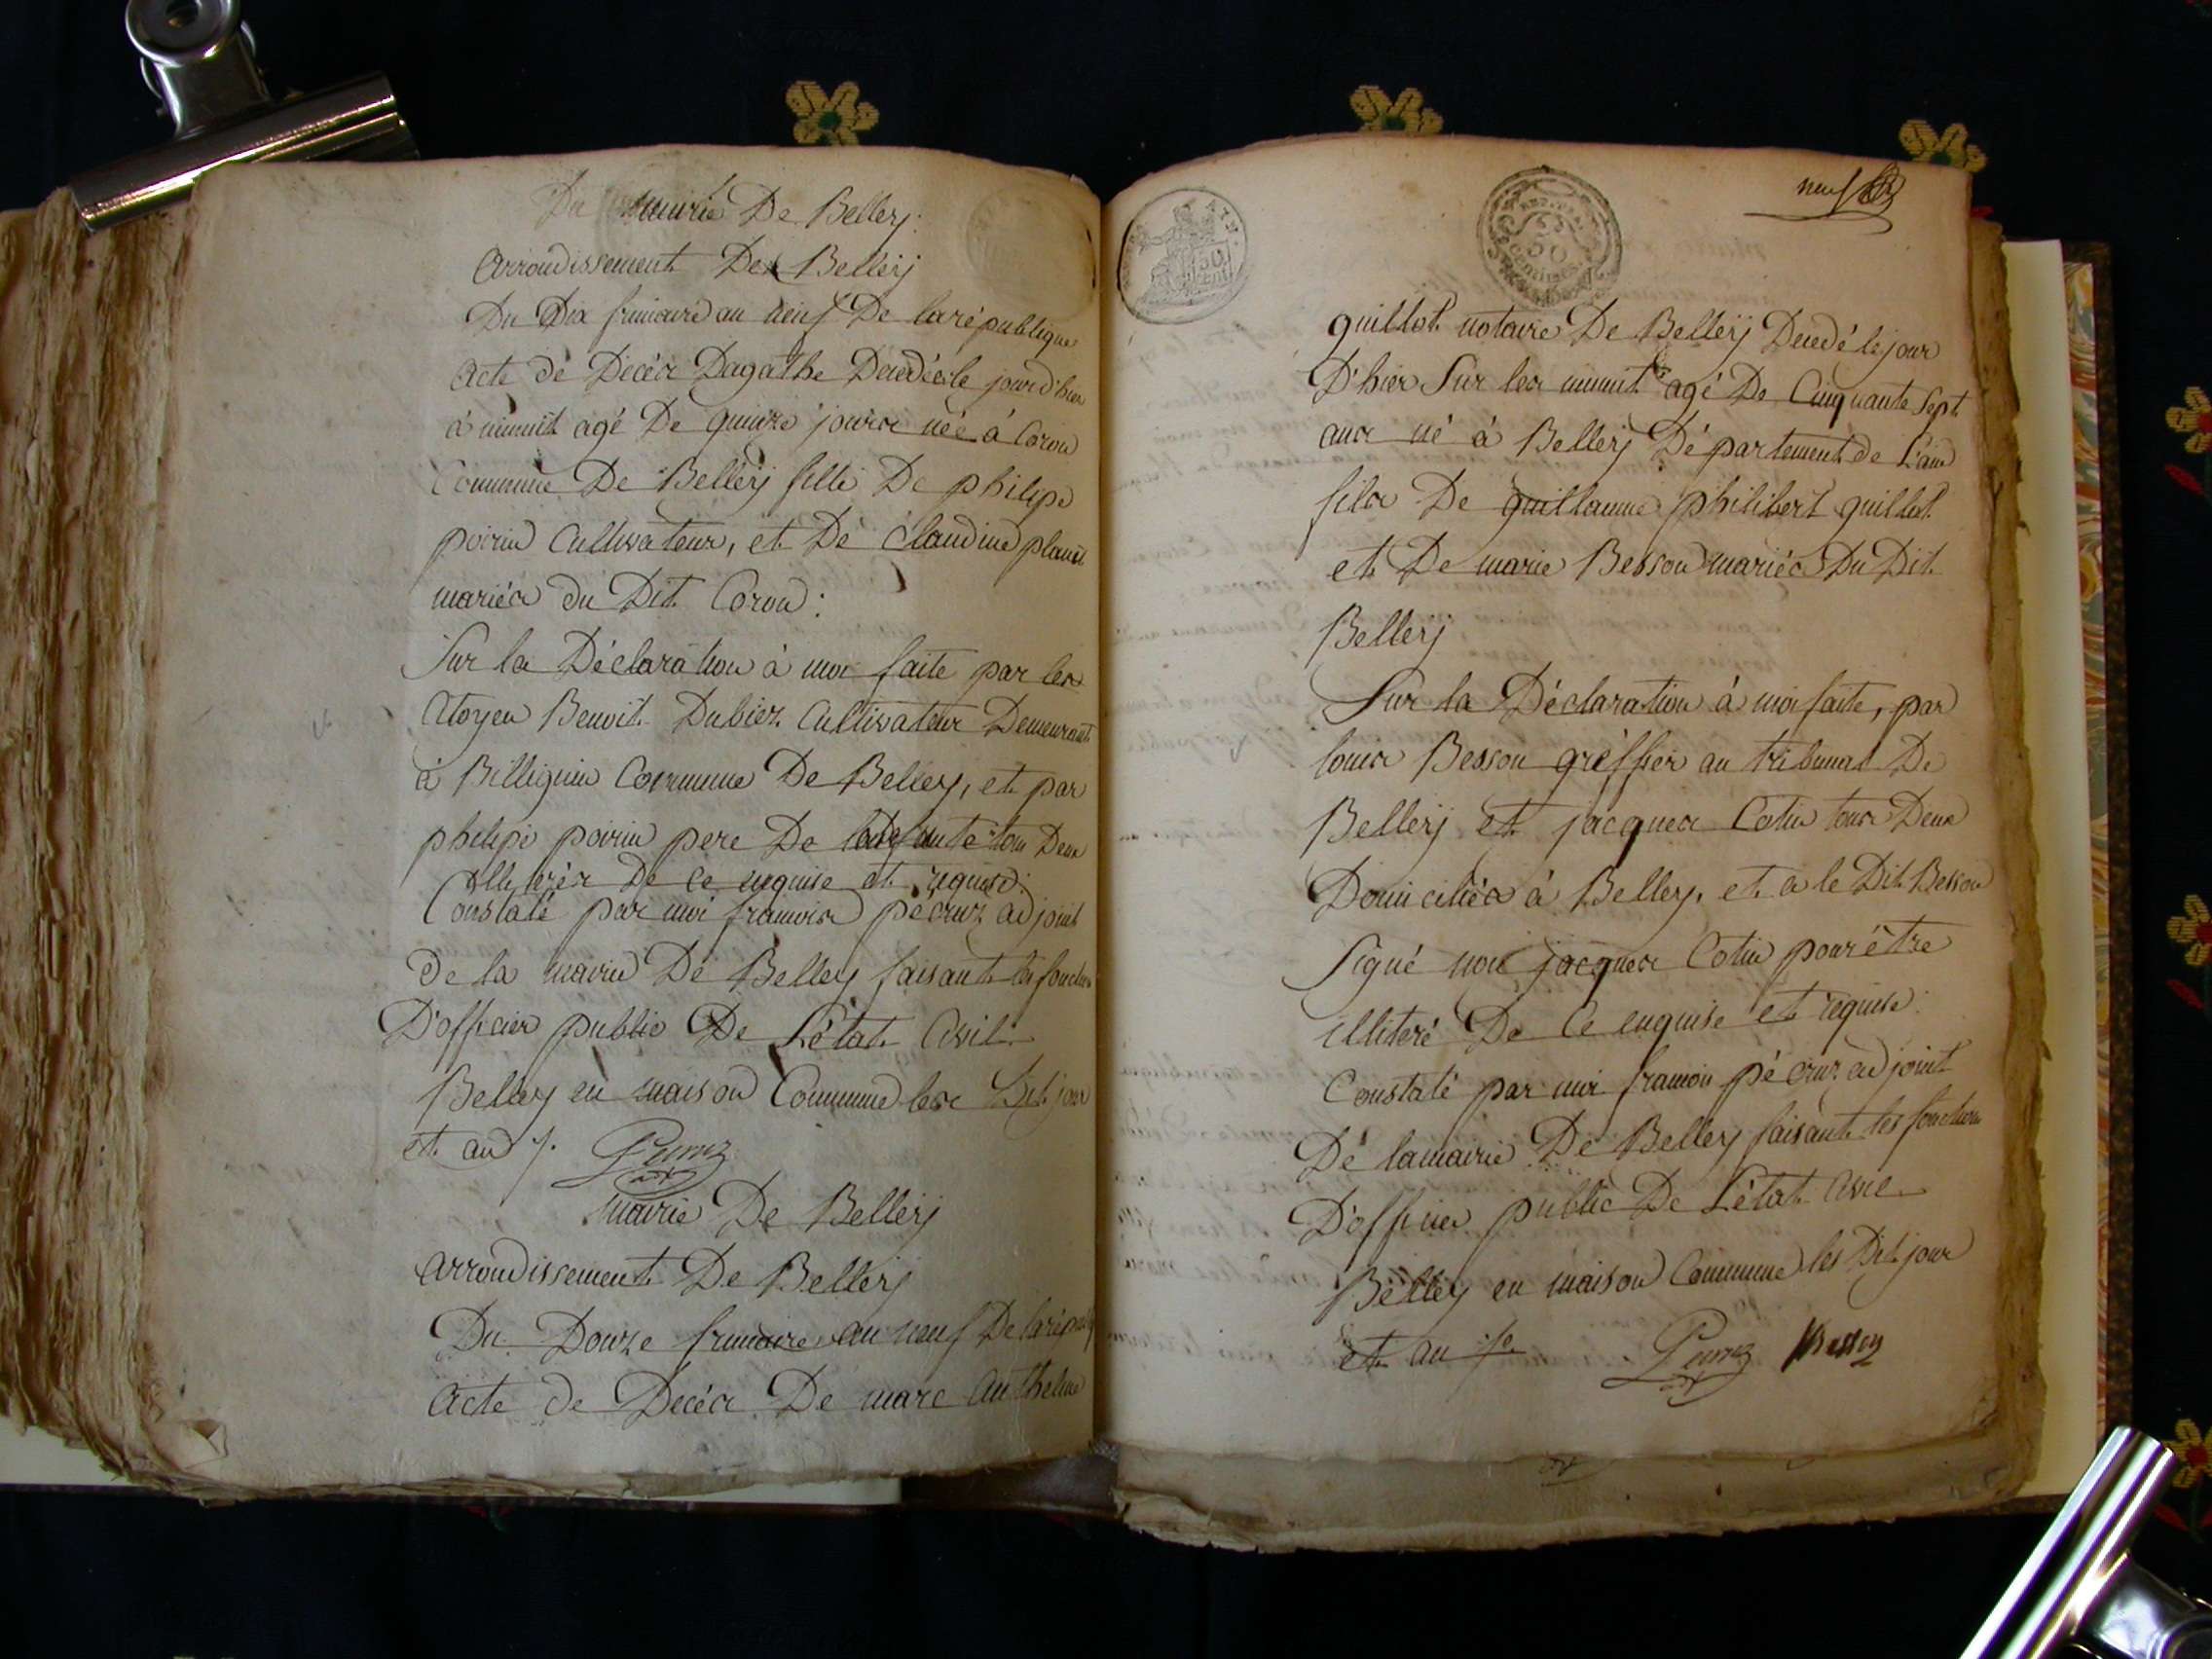 mairie De Belley
arrondissement De Belley
Du Dix frimaire an neuf De la république
acte de Décès Dagathe Decedée le jour d'hier
à minuit agé De quinze jours née à Coron
Commune De Belley fille De philipe
poirin Cultivateur, et De Claudine
mariés du Dit Coron :
Sur la Déclaration à moi faite par les
Citoyen Benoit Dubiez Cultivateur Demeurant
à Billignin Commune De Belley, et par
philipe poirin pere De tous Deux
illiterés De ce enquise et requise :
Constaté par moi francois pécruz adjoint
de la mairie De Belley faisant les fonctions
D'officier public De L'état Civil
Belley en maison Commune les Dit jour
et an /.
mairie De Belley
arrondissement De Belley
Du Douze frimaire an neuf De la
acte de Décès De marc Anthelme
neuf
50
CENT
50
centimes
guillot notaire De Belley Decedé le jour
D'hier Sur les minuit agé De Cinquante Sept
ans né à Belley Département de L'ain
fils De guillaume philibert guillot
et De marie Besson mariés Du Dit
Belley
Sur la Déclaration à moi faite, par
louis Besson gréffier au tribunal De
Belley et jacques Cotin tous Deux
Domiciliés à Belley, et a le Dit Besson
Signé non jacques Cotin pour être
illiteré De Ce enquise et requise :
Constaté par moi francois pécruz adjoint
De la mairie De Belley faisant les fonctions
D'officier public De L'état Civil
Belley en maison Commune les Dit jour
et an /.
Besson